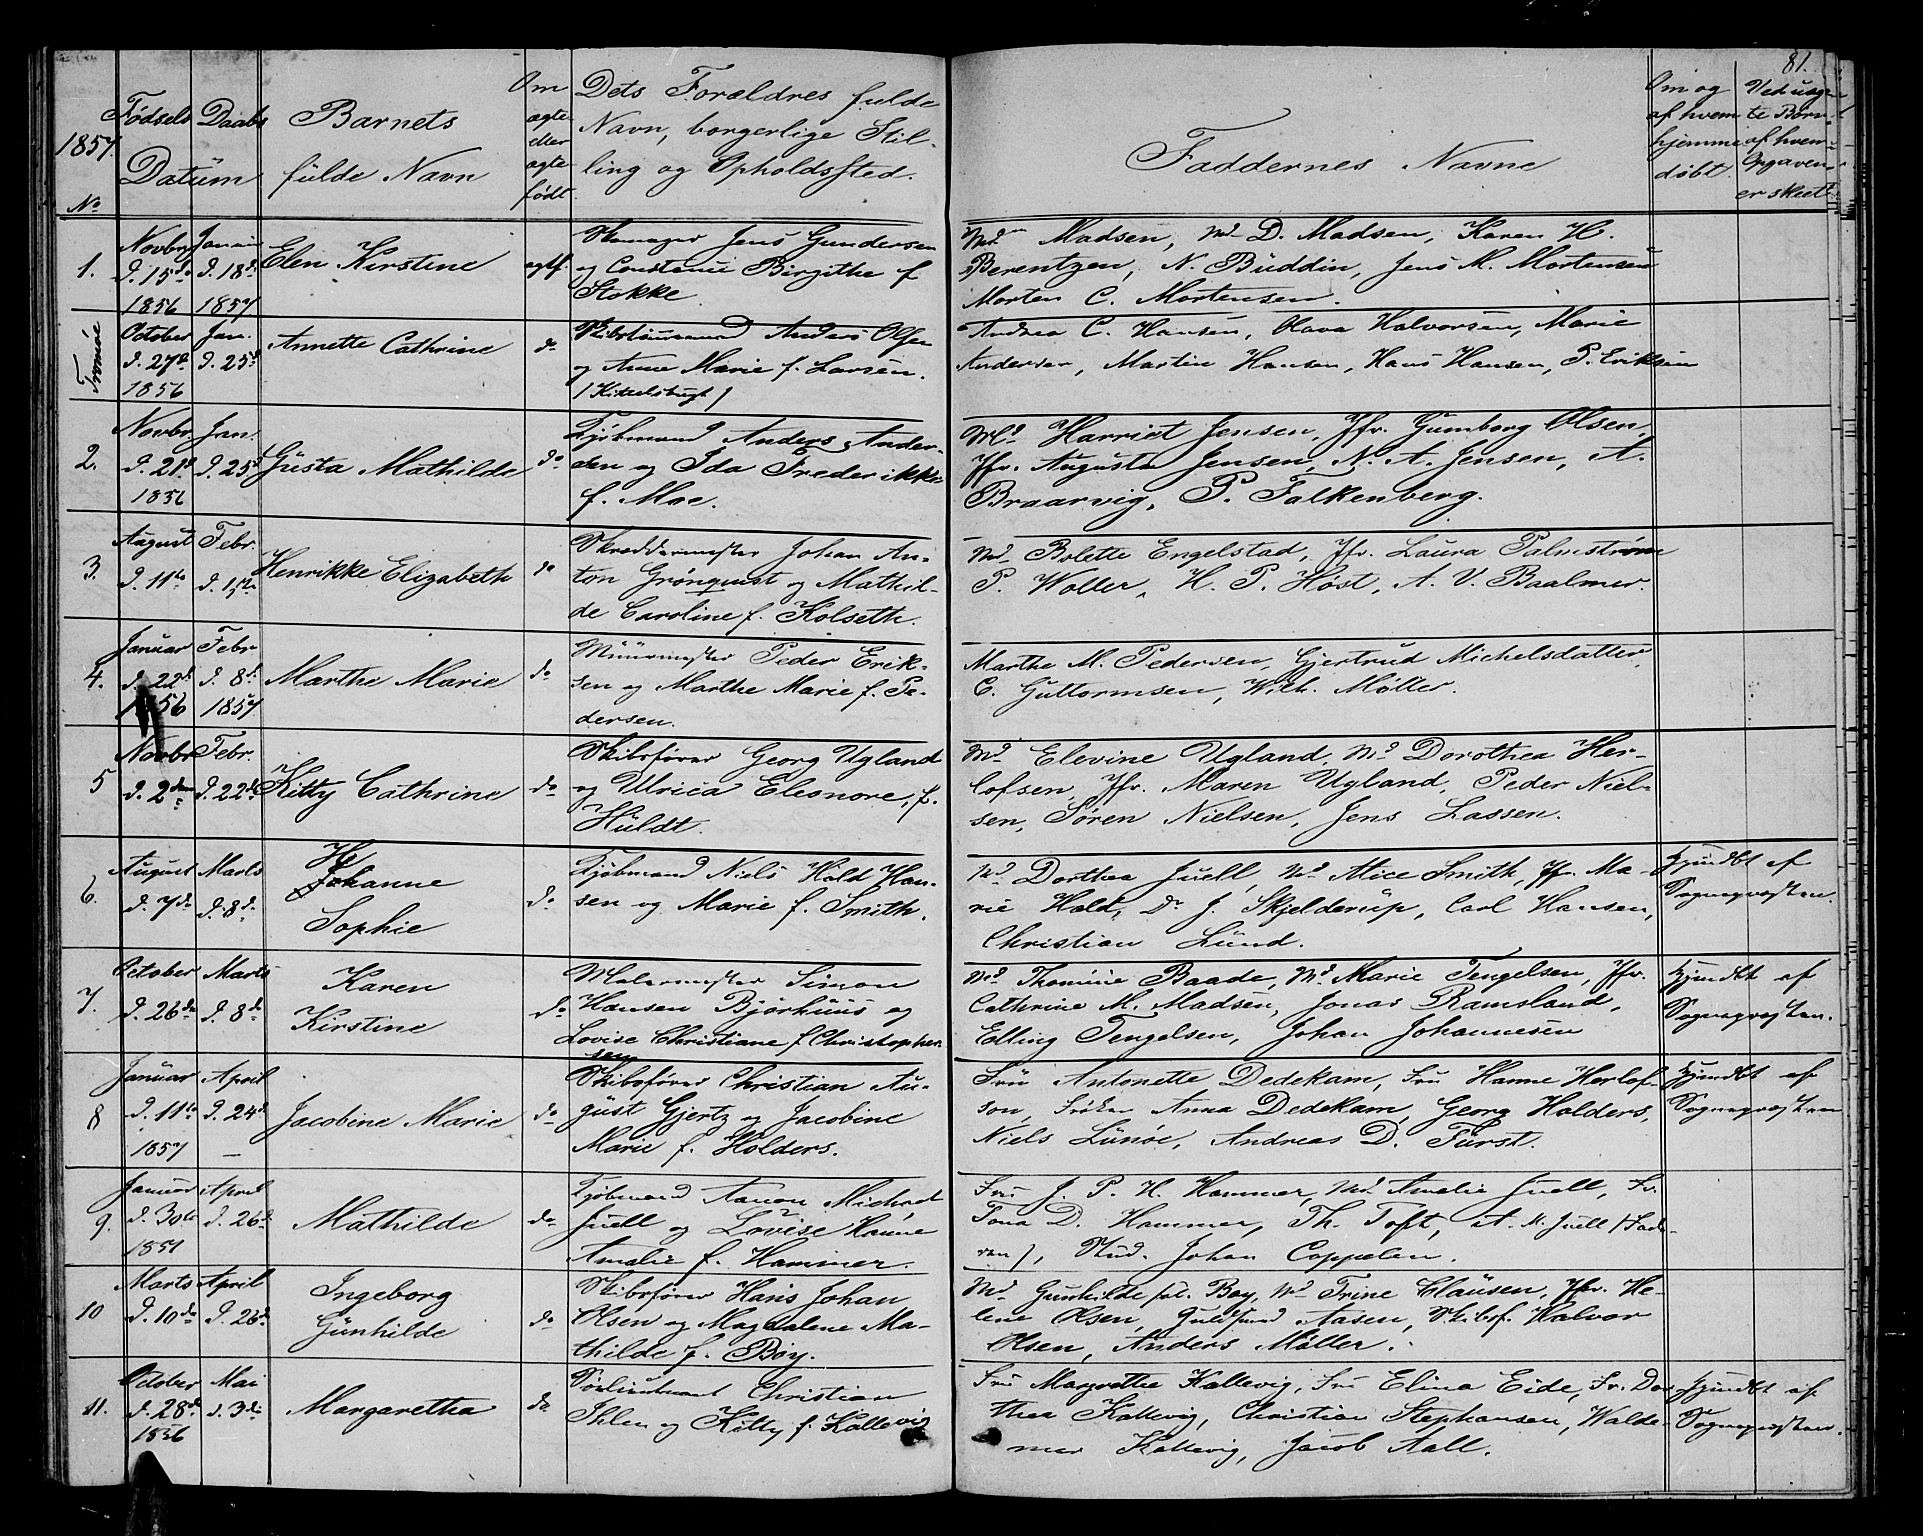 81.
1857.
No
Fødsels Daabs
Datum
Barnets
fulde Navn
Om
ægte
eller
ægte
født.
Dets Forældres fulde
Navn, borgerlige Stil-
ling og Opholdssted.
Faddernes Navne
Om og
af hvem
hjemme
døbt
Ved uæg-
te Børn
af hvem
Opgaven
er skeet
1.
Novbr Januar
d. 15de d. 18d.
1856 1857
Elen Kirstine
ægtf.
Jens Gundersen
og Constance Birgithe f
Stokke
Md Madsen, Md D. Madsen, Karen H.
Berentzen, N. Buddin, Jens M. Mortensen
Morten C. Mortensen.
Tromøe
October Jan.
d. 27d d. 25d
1856
Annette Cathrine
do
Skibstømmermand Anders Olsen
og Anne Marie f. Larsen.
(Kittelsbugt)
Andrea C. Hansen, Olava Halvorsen, Marie
Andersen, Martin Hansen, Hans Hansen, P. Eriksen
2.
Novbr. Jan.
d. 21d d. 25d
1856
Gusta Mathilde
do
Kjøbmand Anders Ander-
sen og Ida Frederikke
f. Moe.
Md Harriet Jensen, Jfr. Gumborg Olsen,
Jfr. Augusta Jensen, N. A. Jensen, A.
Braarvig, P. Falkenberg.
3.
August Febr.
d. 11te d. 15de
Henrikke Elizabeth
do
Skreddermester Johan An-
ton Grønquist og Mathil-
de Caroline f. Kolseth.
Md Bolette Engelstad, Jfr. Laura Palmstrøm
P. Woller, H. P. Høst, A. V. Baalmer.
4.
Januar Febr
d. 22d. d. 8d.
1856 1857
Marthe Marie
do
Muurmester Peder Erik-
sen og Marthe Marie f. Pe-
dersen.
Marthe M. Pedersen, Gjertrud Michelsdatter,
C. Guttormsen, Wilh. Møller.
5
Novbr Febr.
d. 2den d. 22de
Kitty Cathrine
do
Skibsfører Georg Ugland
og Ulrica Eleonore, f.
Huldt.
Md Elevine Ugland, Md Dorothea Her-
lofsen, Jfr. Maren Ugland, Peder Niel-
sen, Søren Nielsen, Jens Lassen.
6.
August Marts
d. 7de d. 8de
He
Johanne
Sophie
do
Kjøbmand Niels Hold Han-
sen og Marie f. Smith.
Md Dorthea Juell, Md Alice Smith, Jfr. Ma-
rie Hald, Dr J. Skjelderup, Carl Hansen,
Christian Lund.
Hjemdbt af
Sognepræsten.
7.
October Marts
d. 26de d. 8de
Karen
Kirstine
do
Malermester Simon
Hansen Bjørhuus og
Lovise Christiane f Christopher-
sen
Md Thomine Baade, Md Marie Tengelsen, Jfr.
Cathrine M. Madsen, Jonas Ramsland,
Elling Tengelsen, Johan Johannesen
Hjemdbt af
Sognepræsten.
8
Januar April
d. 11te d. 24d
1857 –
Jacobine Marie
do
Skibsfører Christian Au-
gust Gjertz og Jacobine
Marie f. Holders.
Fru Antonette Dedekam, Fru Hanne Herlof-
son, Frøken Anna Dedekam, Georg Holders,
Niels Lunøe, Andreas D. Fürst.
Hjemdbt af
Sognepræsten
9.
Januar April
d. 30te d. 26d.
1857
Mathilde
do
Kjøbmand Aanon Michael
Juell og Lovise Hanne
Amalie f. Hammer.
Fru J. P. H. Hammer, Md. Amalie Juell, Fr.
Tona D. Hammer, Th. Toft, A. M. Juell (Fad-
ren), Stud. Johan Coppelen.
10
Marts April
d. 10de d. 26de
Ingeborg
Gunhilde
do
Skibsfører Hans Johan
Olsen og Magdalene Ma-
thilde f. Boy.
Md Gunhilde Boy, Md Trine Clausen, Jfr. He-
lene Olsen, Guldsmed Aasen, Skibsf. Halvor
Olsen, Anders Møller.
11.
October Mai
d. 28de d. 3de
1856
Margaretha
do
Sølieutenant Christian
Ihlen og Kitty f. Kallevig
Fru Margrethe Kallevig, Fru Elina Eide, Fr. Doro
thea Kallevig, Christian Stephansen, Walde-
mar Kallevig, Jacob Aall.
Hjemdbt af
Sognepræsten.